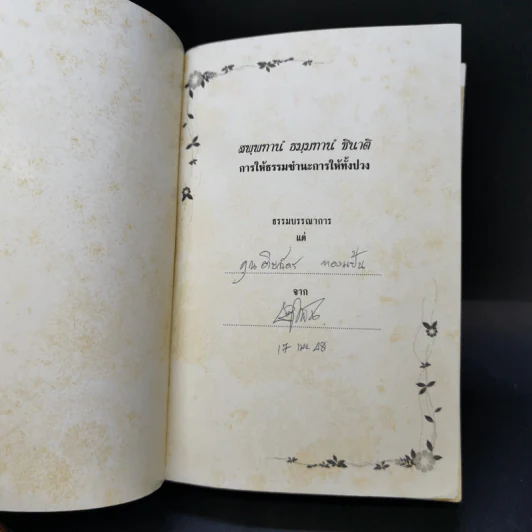 สพฺพทานํ ธมฺมทานํ ชินาติ
การให้ธรรมชำนะการให้ทั้งปวง
ธรรมบรรณาการ
แด่
คุณ
จาก
17 เมย 48